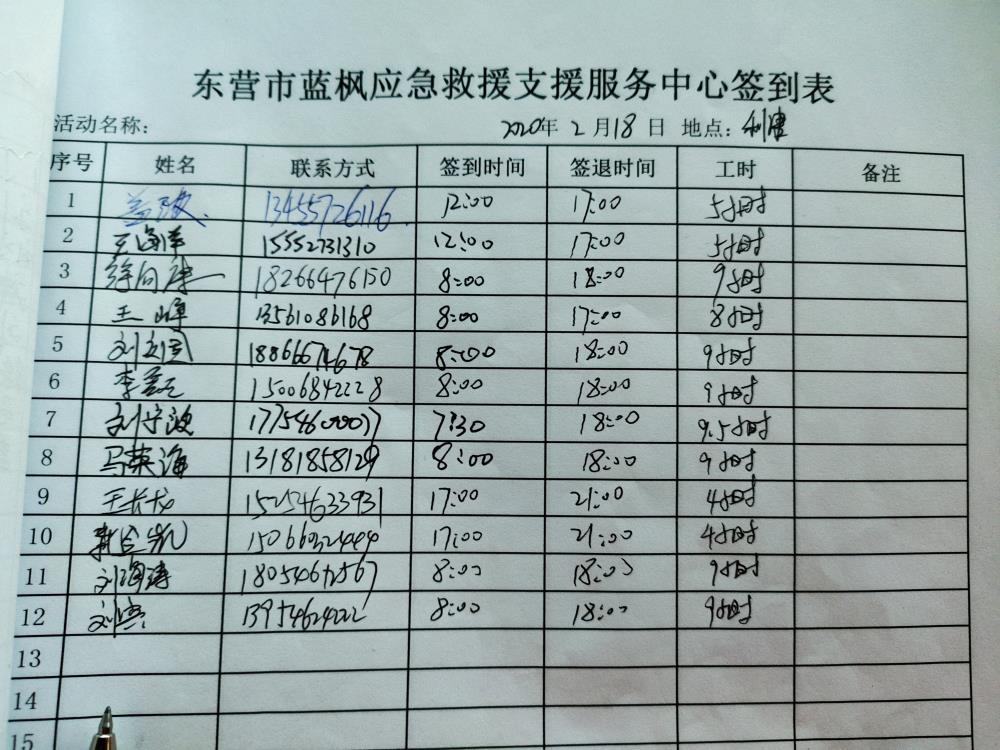 东营市蓝枫应急救援支援服务中心签到表
活动名称: 2020年 2月18日 地点: 利唐
序号 姓名 联系方式 签到时间 签退时间 工时 备注
1 13455726116 12:00 17:00 5小时
2 王海洋 15552731310 12:00 17:00 5小时
3 徐向康 18266476150 8:00 18:00 9小时
4 王峰 13561086168 8:00 17:00 8小时
5 18866674678 8:00 18:00 9小时
6 15006842228 8:00 18:00 9小时
7 刘宁波 17754600077 7:30 18:00 9.5小时
8 马英海 13181858129 8:00 18:00 9小时
9 王长龙 15254633931 17:00 21:00 4小时
10 17:00 21:00 4小时
11 刘海涛 18054672567 8:00 18:00 9小时
12 13954624222 8:00 18:00 9小时
13
14
15